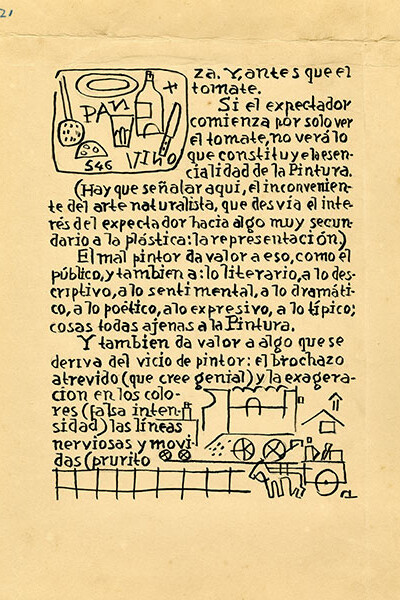 21
PAN
546
VINO
za. Y, antes que el
tomate.
Si el expectador
comienza por solo ver
el tomate, no verá lo
que constituye la esen-
cialidad de la Pintura.
(Hay que señalar aquí, el inconvenien-
te del arte naturalista, que desvía el inte-
rés del expectador hacia algo muy secun-
dario a la plástica: la representación.)
El mal pintor da valor a eso, como el
público, y tambien a: lo literario, a lo des-
criptivo, a lo sentimental, a lo dramáti-
co, a lo poético, a lo expresivo, a lo típico;
cosas todas ajenas a la Pintura.
Y tambien da valor a algo que se
deriva del vicio de pintor: el brochazo
atrevido (que cree genial) y la exagera-
cion en los colo-
res (falsa inten-
sidad) las líneas
nerviosas y movi-
das (prurito